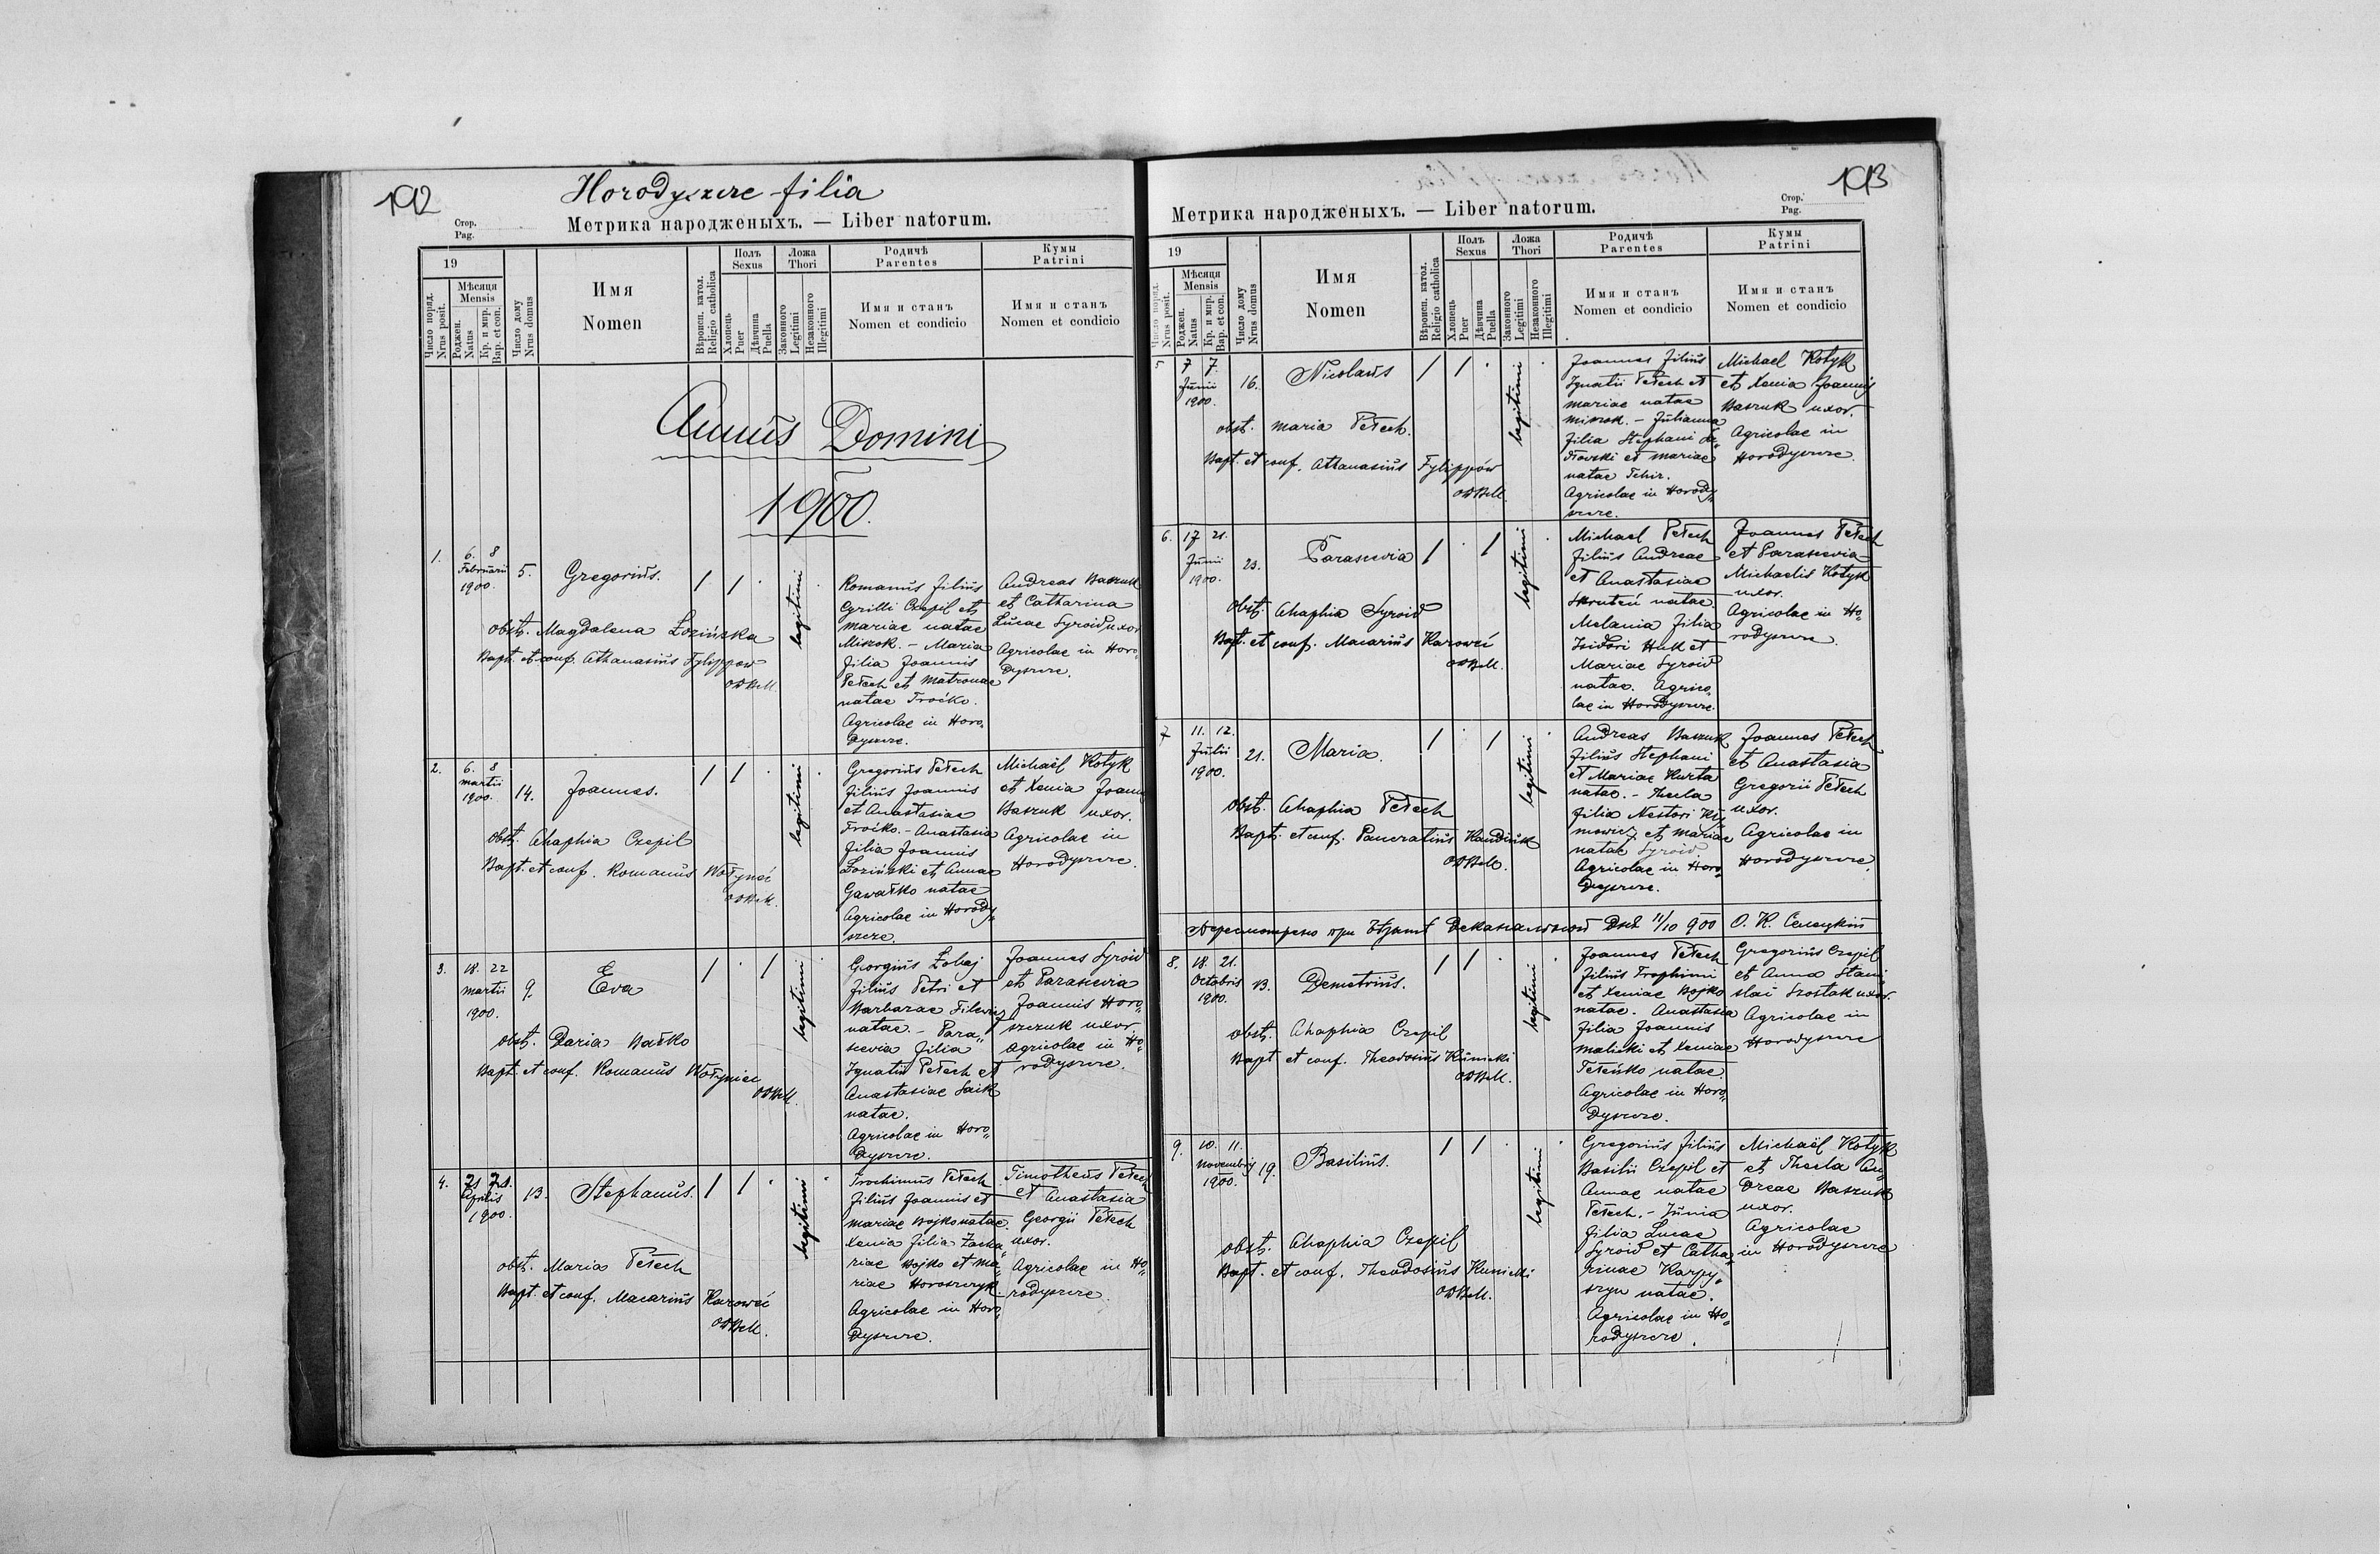 192
Horodyszcze filia
Стор.
Pag.
Метрика народженыхъ. — Liber natorum.
19
Число поряд.
Nrus posit.
Мѣсяця
Mensis
Роджен.
Natus
Кр. и мир.
Bap. et con.
Число дому
Nrus domus
Имя
Nomen
Вѣроисп. катол.
Religio catholica
Полъ
Sexus
Хлопець
Puer
Дѣвчина
Puella
Ложа
Thori
Законного
Legitimi
Незаконного
Illegitimi
Родичѣ
Parentes
Имя и станъ
Nomen et condicio
Кумы
Patrini
Имя и станъ
Nomen et condicio
Annus Domini
1900.
1.
6. 8
Februarii
1900.
5.
Gregorius.
/ / .
legitimi
obst. Magdalena Łozińska
Bapt. et conf. Athanasius Fylippow
OSBM.
Romanus filius
Cyrilli Czepil et
Mariae natae
Miszok. - Maria
filia Joannis
Petech et Matronae
natae Troćko.
Agricolae in Horo„
dyszcze.
Andreas Baszuk
et Catharina
Lucae Syroid uxor
Agricolae in Horo„
dyszcze.
2.
6. 8
Martii
1900.
14.
Joannes.
/ / .
legitimi
obst. Ahaphia Czepil
Bapt. et conf. Romanus Wołyneć
OSBM.
Gregorius Petech
filius Joannis
et Anastasiae
Troćko. - Anastasia
filia Joannis
Łoziński et Annae
Gawałko natae
Agricolae in Horody„
szcze.
Michaël Kotyk
et Xenia Joannis
Baszuk uxor.
Agricolae in
Horodyszcze.
3.
18. 22
Martii
1900.
9.
Eva
/ . /
legitimi
obst. Daria Bałko
Bapt. et conf. Romanus Wołyniec
OSBM.
Georgius Łobaj
filius Petri et
Barbarae Filewicz
natae. - Para„
scevia filia
Ignatii Petech et
Anastasiae Saik
natae.
Agricolae in Horo„
dyszcze.
Joannes Syroid
et Parascevia
Joannis Horo„
szczuk uxor.
Agricolae in Ho„
rodyszcze.
4.
Aprilis
1900.
13.
Stephanus.
/ / .
legitimi
obst. Maria Petech
Bapt. et conf. Macarius Karoweć
OSBM.
Trochimus Petech
filius Joannis et
Mariae Bojko natae.
Xenia filia Zacha„
riae Bojko et Ma„
riae Horoszczyk
Agricolae in Horo„
dyszcze.
Timotheus Petech
et Anastasia
Georgii Petech
uxor.
Agricolae in Ho„
rodyszcze.
193
Стор.
Pag.
Метрика народженыхъ. — Liber natorum.
19
Число поряд.
Nrus posit.
Мѣсяця
Mensis
Роджен.
Natus
Кр. и мир.
Bap. et con.
Число дому
Nrus domus
Имя
Nomen
Вѣроисп. катол.
Religio catholica
Полъ
Sexus
Хлопець
Puer
Дѣвчина
Puella
Ложа
Thori
Законного
Legitimi
Незаконного
Illegitimi
Родичѣ
Parentes
Имя и станъ
Nomen et condicio
Кумы
Patrini
Имя и станъ
Nomen et condicio
5
7 7.
Junii
1900.
16.
Nicolaus
/ / .
legitimi
obst. Maria Petech.
Bapt. et conf. Athanasius Fylippów
OSBM.
Joannes filius
Ignatii Petech et
Mariae natae
Miszok. - Julianna
filia Stephani
et Mariae
natae
Agricolae in Horody„
szcze.
Michael Kotyk
et Xenia Joannis
Baszuk uxor.
Agricolae in
Horodyszcze.
6.
17 21.
Junii
1900.
23.
Parascevia
/ . /
legitimi
obst. Ahaphia Syroid
Bapt. et conf. Macarius Karoweć
OSBM.
Michael Petech
filius Andreae
et Anastasiae
natae.
Melania filia
Isidori Huk et
Mariae Syroid
natae. Agrico„
lae in Horodyszcze.
Joannes Petech
et Parascevia
Michaelis Kotyk
uxor.
Agricolae in Ho„
rodyszcze.
7
11. 12.
Julii
1900.
21.
Maria.
/ . /
legitimi
obst. Ahaphia Petech
Bapt. et conf. Pancratius Kandiuk
OSBM.
Andreas Baszuk
filius Stephani
et Mariae Kurta
natae. - Thecla
filia Nestori Kli„
mowicz et Mariae
natae Syroid
Agricolae in Horo„
dyszcze.
Joannes Petech
et Anastasia
Gregorii Petech
uxor.
Agricolae in
Horodyszcze.
Пересмотрено при Деканальной Днѣ 11/10 900 О. К. Селецкій
8.
18. 21.
Octobris
1900.
13.
Demetrius.
/ / .
legitimi
obst. Ahaphia Czepil
Bapt et conf. Theodosius Kunicki
OSBM.
Joannes Petech
filius Trophimi
et Xeniae Bojko
natae. Anastasia
filia Joannis
Malicki et Xeniae
Peteńko natae
Agricolae in Horo„
dyszcze.
Gregorius Czepil
et Anna Stani„
slai Szostak uxor.
Agricolae in
Horodyszcze
9.
10. 11.
Novembris
1900.
19.
Basilius.
/ / .
legitimi
obst. Ahaphia Czepil
Bapt. et conf. Theodosius Kunicki
OSBM.
Gregorius filius
Basilii Czepil et
Annae natae
Petech. - Junia
filia Lucae
Syroid et Catha„
rinae Karpy„
szyn natae.
Agricolae in Ho„
rodyszcze.
Michaël Kotyk
et Thecla An„
dreae Baszuk
uxor.
Agricolae
in Horodyszcze